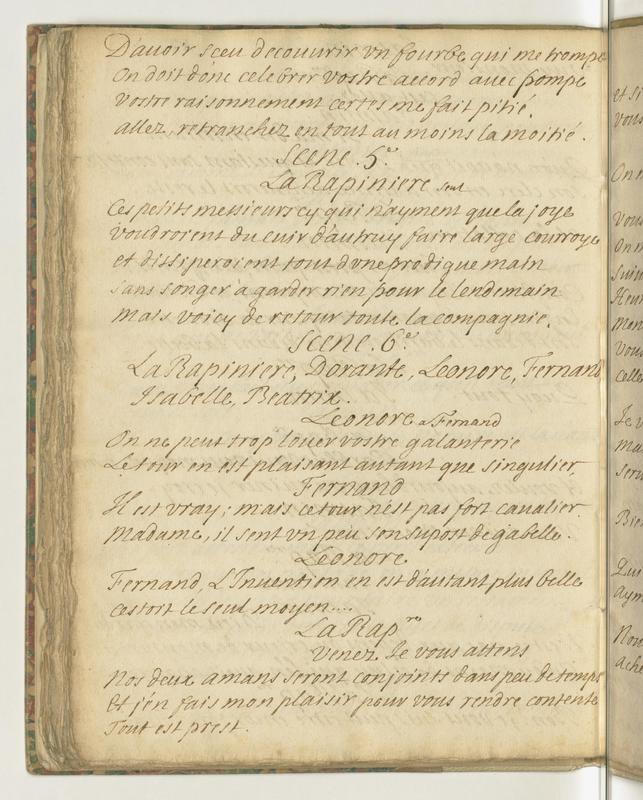 D'auoir sceu decouurir vn fourbe qui me trompe
On doit donc celebrer vostre accord auec pompe
Vostre raisonnement certes me fait pitié.
allez, retranchez en tout au moins la moitié.
Scene. 5.e
La Rapiniere seul
Ces petits messieurs cy qui n'ayment que la joye
Voudroient du cuir d'autruy faire large courroye
et dissiperoient tout d'vne prodigue main
sans songer a garder rien pour le lendemain
Mais voicy de retour toute la compagnie.
Scene. 6.e
La Rapiniere, Dorante, Leonore, Fernand
Isabelle, Beatrix.
Leonore a Fernand
On ne peut trop louer vostre galanterie
Le tour en est plaisant autant que singulier
Fernand
Il est vray; mais ce tour n'est pas fort caualier
Madame, il sent vn peu son supost de gabelle.
Leonore
Fernand, L'Inuention en est d'autant plus belle
cestoit le seul moyen....
La Rap.re
Venez. Je vous attens
Nos deux amans seront conjoints dans peu de temps
Et j'en fais mon plaisir pour vous rendre contente
Tout est prest.